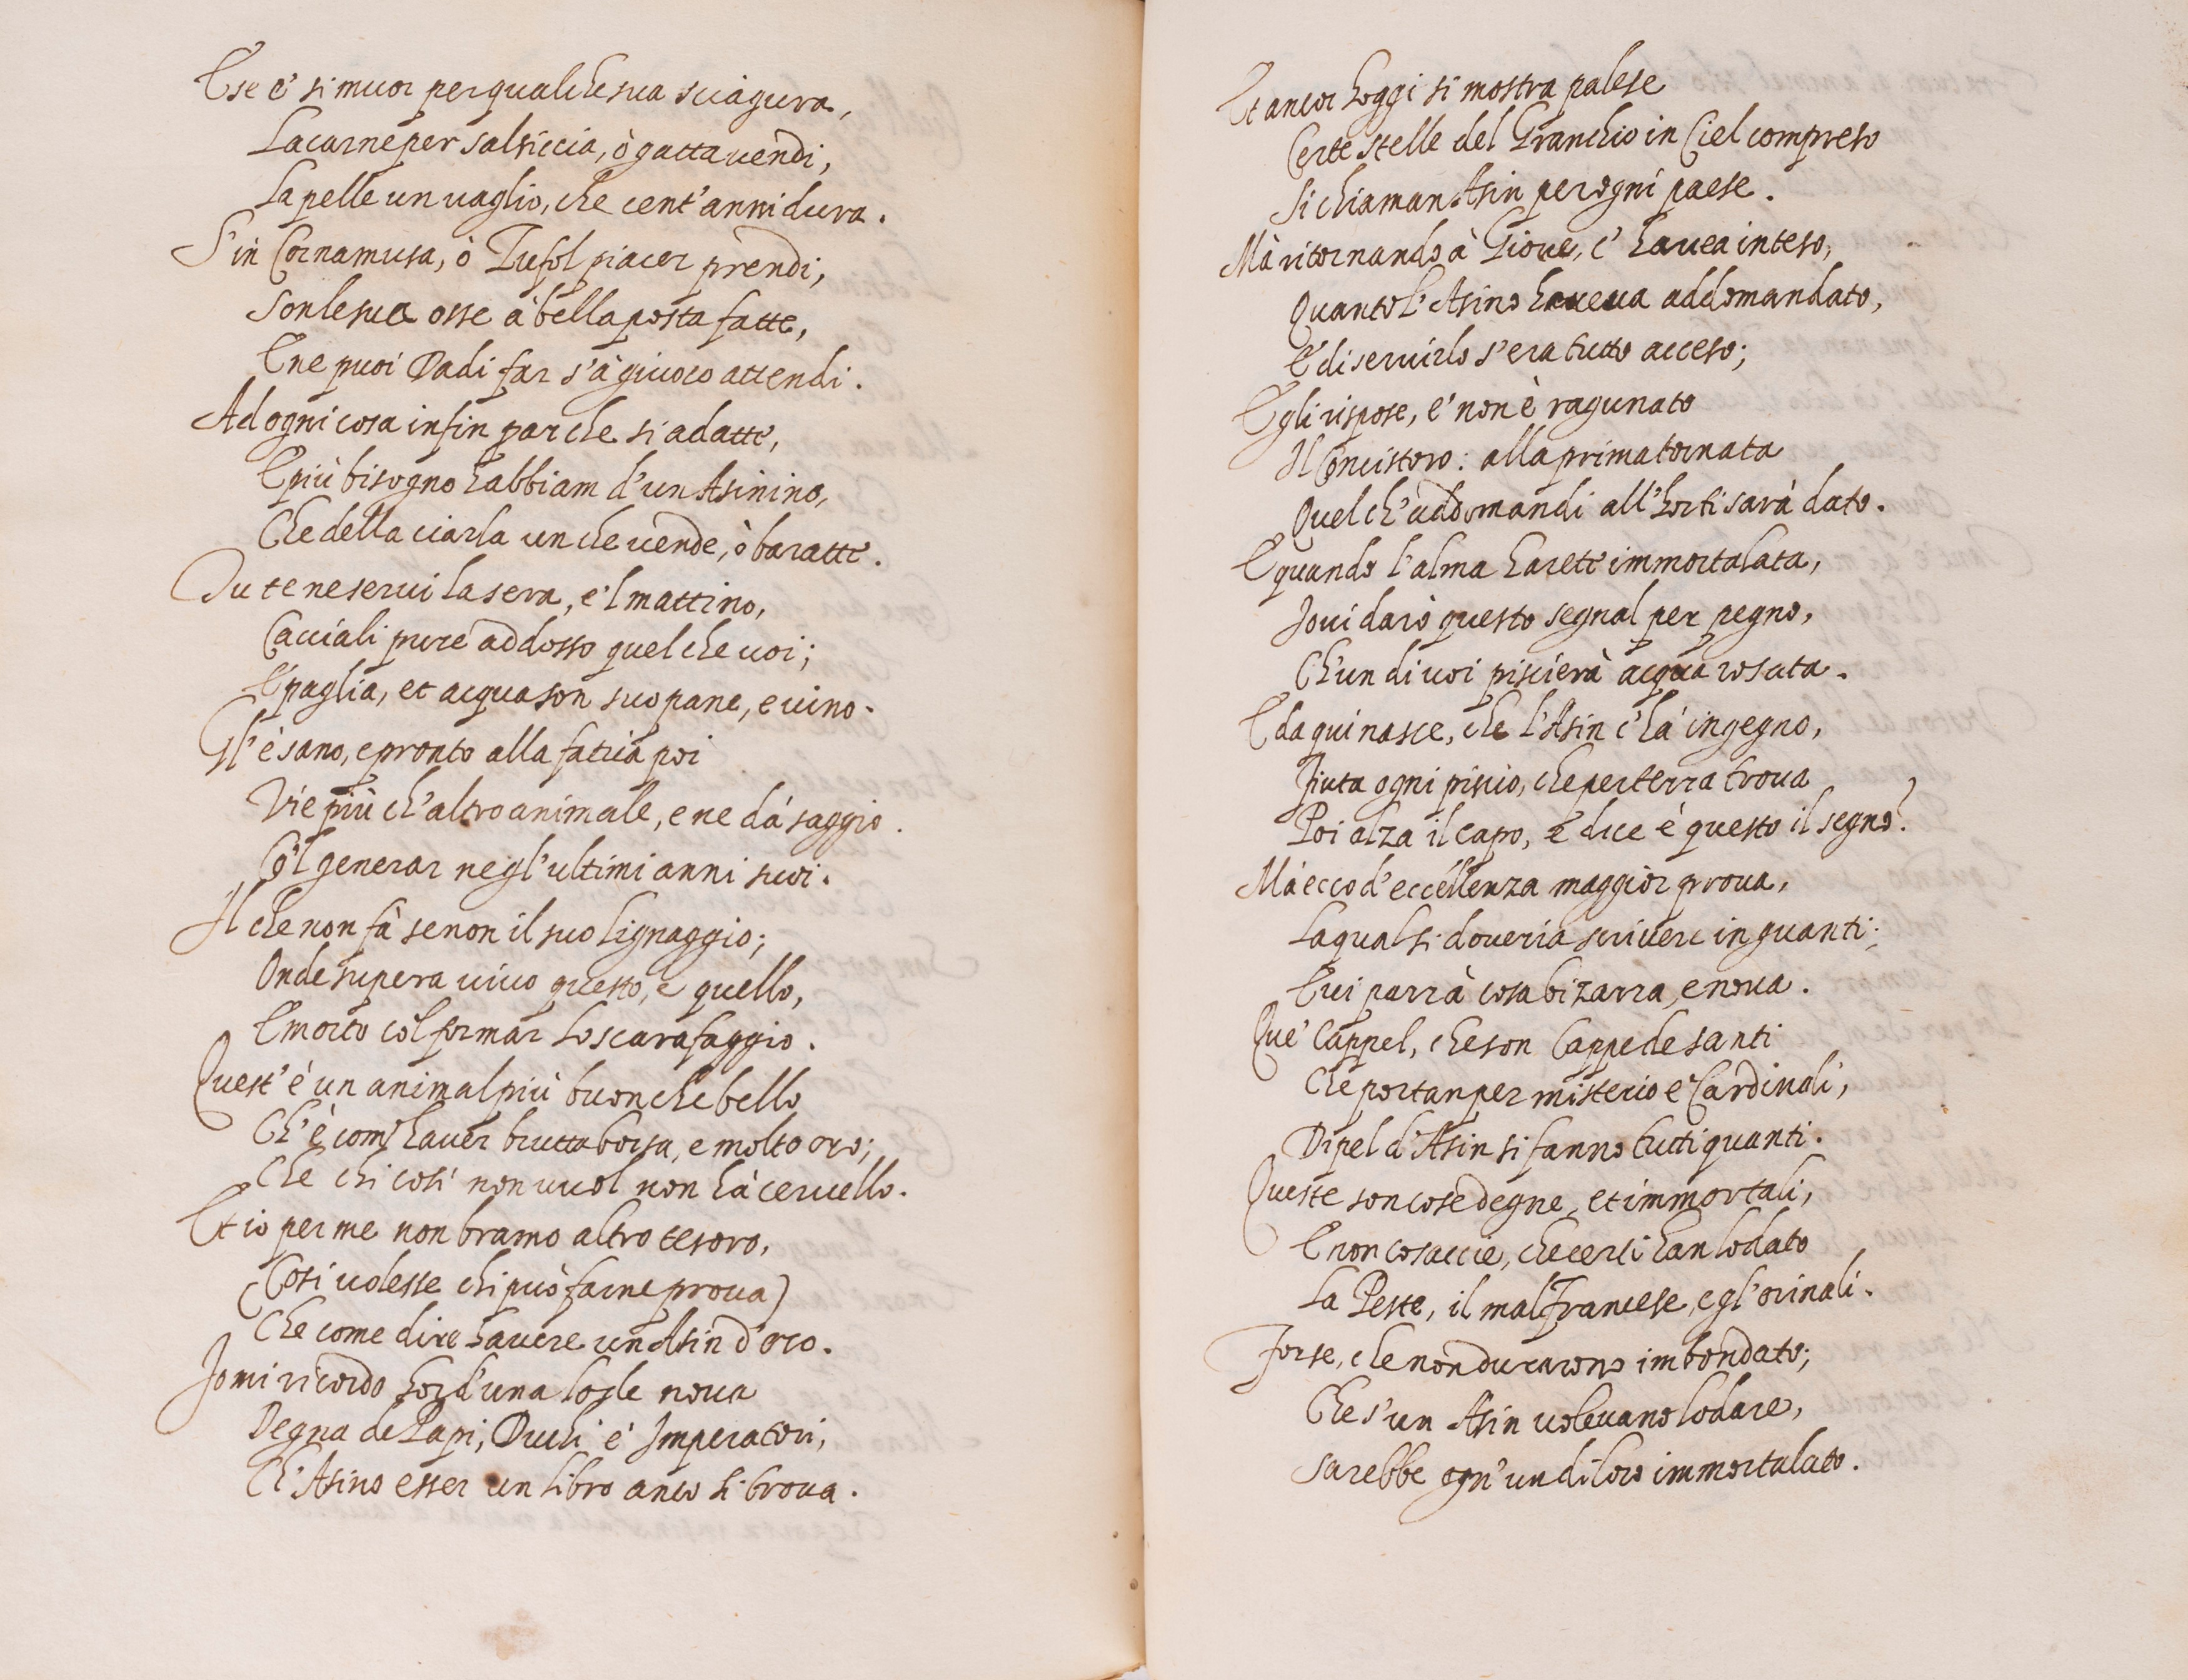 E se e' si muor per qualche sua sciagura,
La carne per salsiccia, ò gatta vendi,
La pelle un vaglio, che cent'anni dura.
S'in Cornamusa, ò Zufol piacer prendi,
Son le sue osse à bella posta fatte,
E ne puoi Dadi far s'à giuoco attendi.
Ad ogni cosa infin par che si adatte,
E più bisogno habbiam d'un Asinino,
Che della ciarla un che vende, ò baratte.
Tu te ne servi la sera, e'l mattino,
Cacciali pure addosso quel che voi;
E paglia, et acqua son suo pane, e vino.
Gl'è sano, e pronto alla fatica poi
Vie più ch'altro animale, e ne dà saggio.
Co'l generar negl'ultimi anni suoi.
Il che non fà se non il suo Lignaggio;
Onde supera vivo questo, e quello,
E morto col formar lo scarafaggio.
Quest'è un animal più buon che bello
Ch'è com' haver brutta borsa, e molto oro;
Che chi così non vuol non hà cervello.
Et io per me non bramo altro tesoro,
(Così volesse chi può farne prova)
Che come dire havere un Asin d'oro.
Io mi ricordo hor d'una loyle nova
Degna de Papi, Duchi e' Imperatori,
Ch'Asino esser un libro anco si trova.
Et ancor hoggi si mostra palese
Certe stelle del Granchio in Ciel compreso
Si chiaman Asin per ogni paese.
Mà ritornando à Giove, c'havea inteso,
Quanto l'Asino haveva addomandato,
E di servirlo s'era tutto acceso;
Egli rispose, e' non è ragunato
Il Concistoro: alla prima tornata
Quel ch'addomandi all'horti sarà dato.
E quando l'alma harete immortalata,
Io vi darò questo segnal per pegno,
Ch'un di voi piscierà acqua rosata.
E da qui nasce, che l'Asin c'hà ingegno,
Fiuta ogni piscio, che per terra trova
Poi alza il capo, e dice è questo il segno?
Mà ecco d'eccellenza maggior prova,
La qual si doveria scrivere in guanti;
E vi parrà cosa bizarra, e nova.
Que' Cappel, che son Cappe de santi
Che portan per misterio e' Cardinali,
Di pel d'Asin si fanno tutti quanti.
Queste son cose degne, et immortali,
E non cosaccie, che certi han lodato
La Peste, il mal Francese, e gl'orinali.
Forse, che non durarono imbondato;
Che s'un Asin volevano lodare,
Sarebbe ogn'un di loro immortalato.